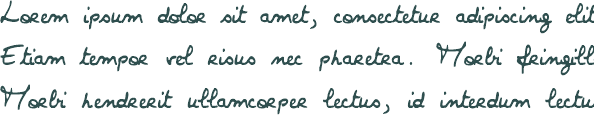 Lorem ipsum dolor sit amet, consectetur adipiscing elit
Etiam tempor vel risus nec pharetra. Morbi fringill
Morbi hendrerit ullamcorper lectus, id interdum lectu